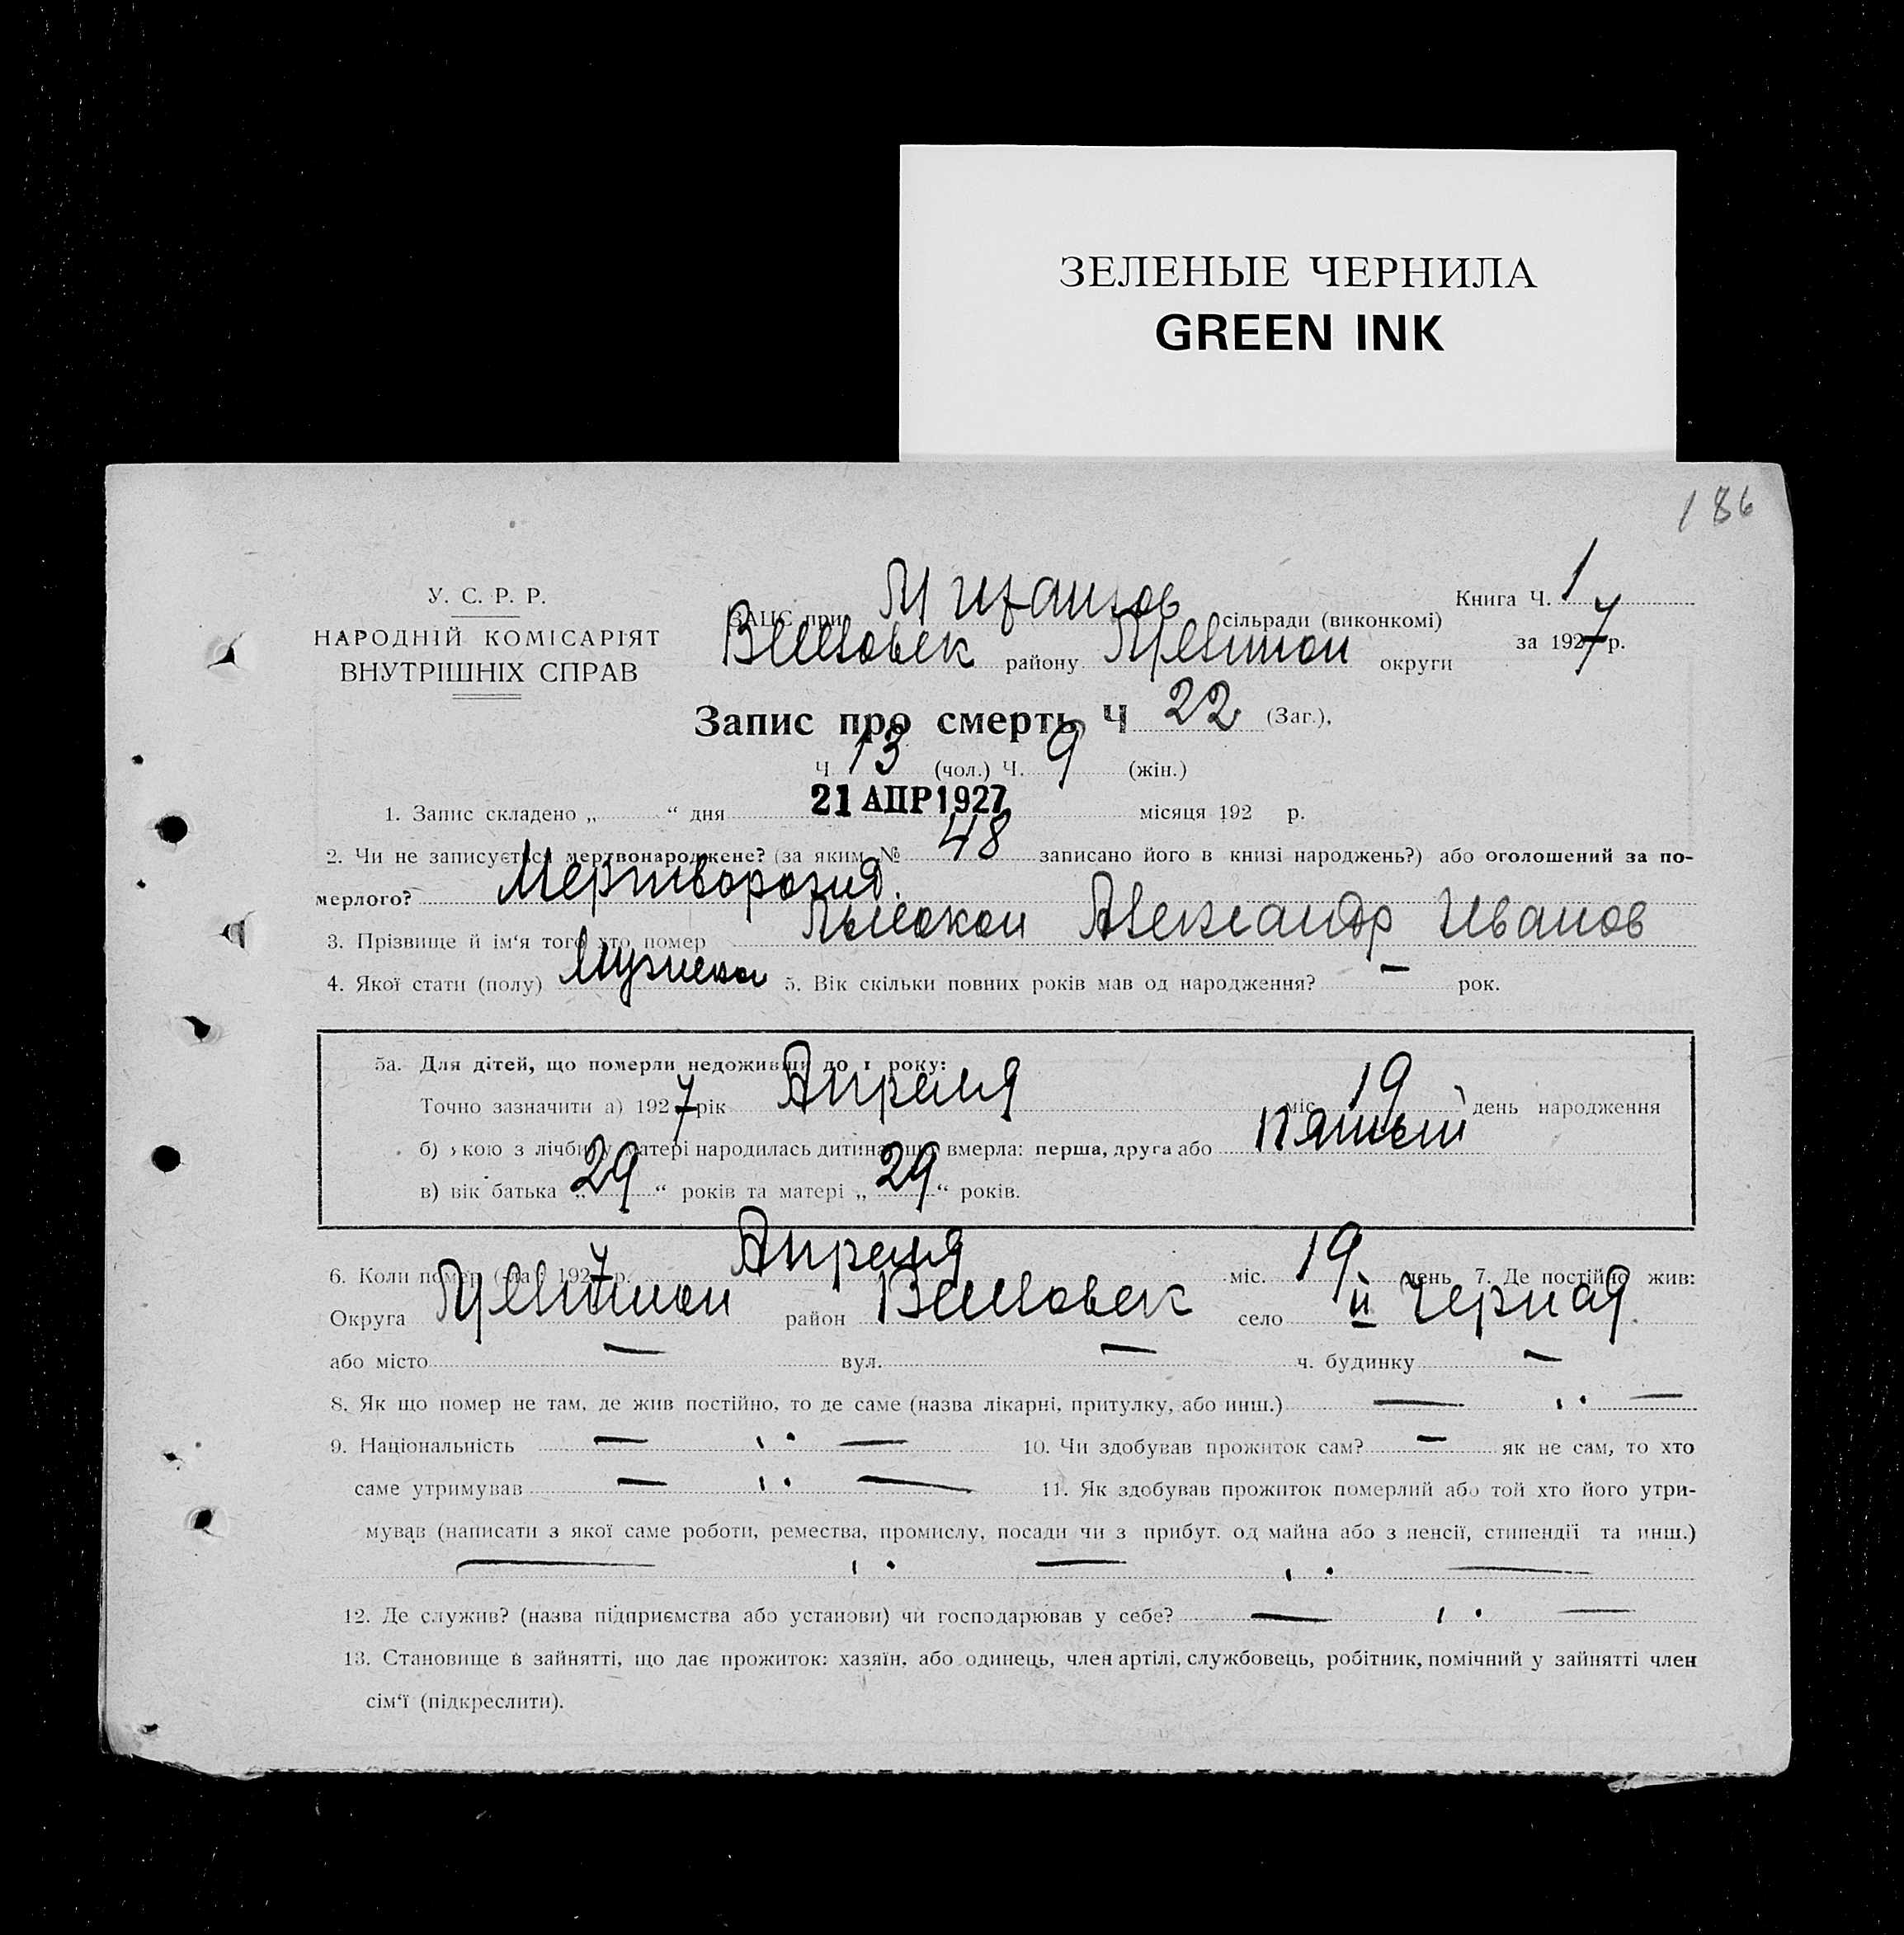 ЗЕЛЕНЫЕ ЧЕРНИЛА
GREEN INK
186
У. С. Р. Р.
НАРОДНІЙ КОМІСАРІЯТ
ВНУТРІШНІХ СПРАВ
ЗАГС при сільради (виконкомі)
району округи
Книга Ч. 1
за 1927 р.
Запис про смерть Ч 22 (Заг.),
Ч 13 (чол.) Ч. 9 (жін.)
1. Запис складено „ “ дня 21 АПР 1927 місяця 192 р.
2. Чи не записується мертвонароджене? (за яким № 48 записано його в книзі народжень?) або оголошений за по-
мерлого? Мертворожд.
3. Прізвище й ім‘я того хто помер Александр Иванов
4. Якої стати (полу) 5. Вік скільки повних років мав од народження? — рок.
5а. Для дітей, що померли недоживши до 1 року:
Точно зазначити а) 1927 рік Апреля міс. 19 день народження
б) якою з лічби у матері народилась дитина, що вмерла: перша, друга або пятый
в) вік батька „ 29 “ років та матері „ 29 “ років.
6. Коли помер (-ла) 1927 р. Апреля міс. 19 день 7. Де постійно жив:
Округа район село Черная
або місто — вул. — ч. будинку —
8. Як що помер не там, де жив постійно, то де саме (назва лікарні, притулку, або инш.) — ·· —
9. Національність — ·· — 10. Чи здобував прожиток сам? — як не сам, то хто
саме утримував — ·· — 11. Як здобував прожиток померлий або той хто його утри-
мував (написати з якої саме роботи, ремества, промислу, посади чи з прибут. од майна або з пенсії, стипендії та инш.)
— ·· — ·· —
12. Де служив? (назва підприємства або установи) чи господарював у себе? — ·· —
13. Становище в зайнятті, що дає прожиток: хазяїн, або одинець, член артілі, службовець, робітник, помічний у зайнятті член
сім‘ї (підкреслити).